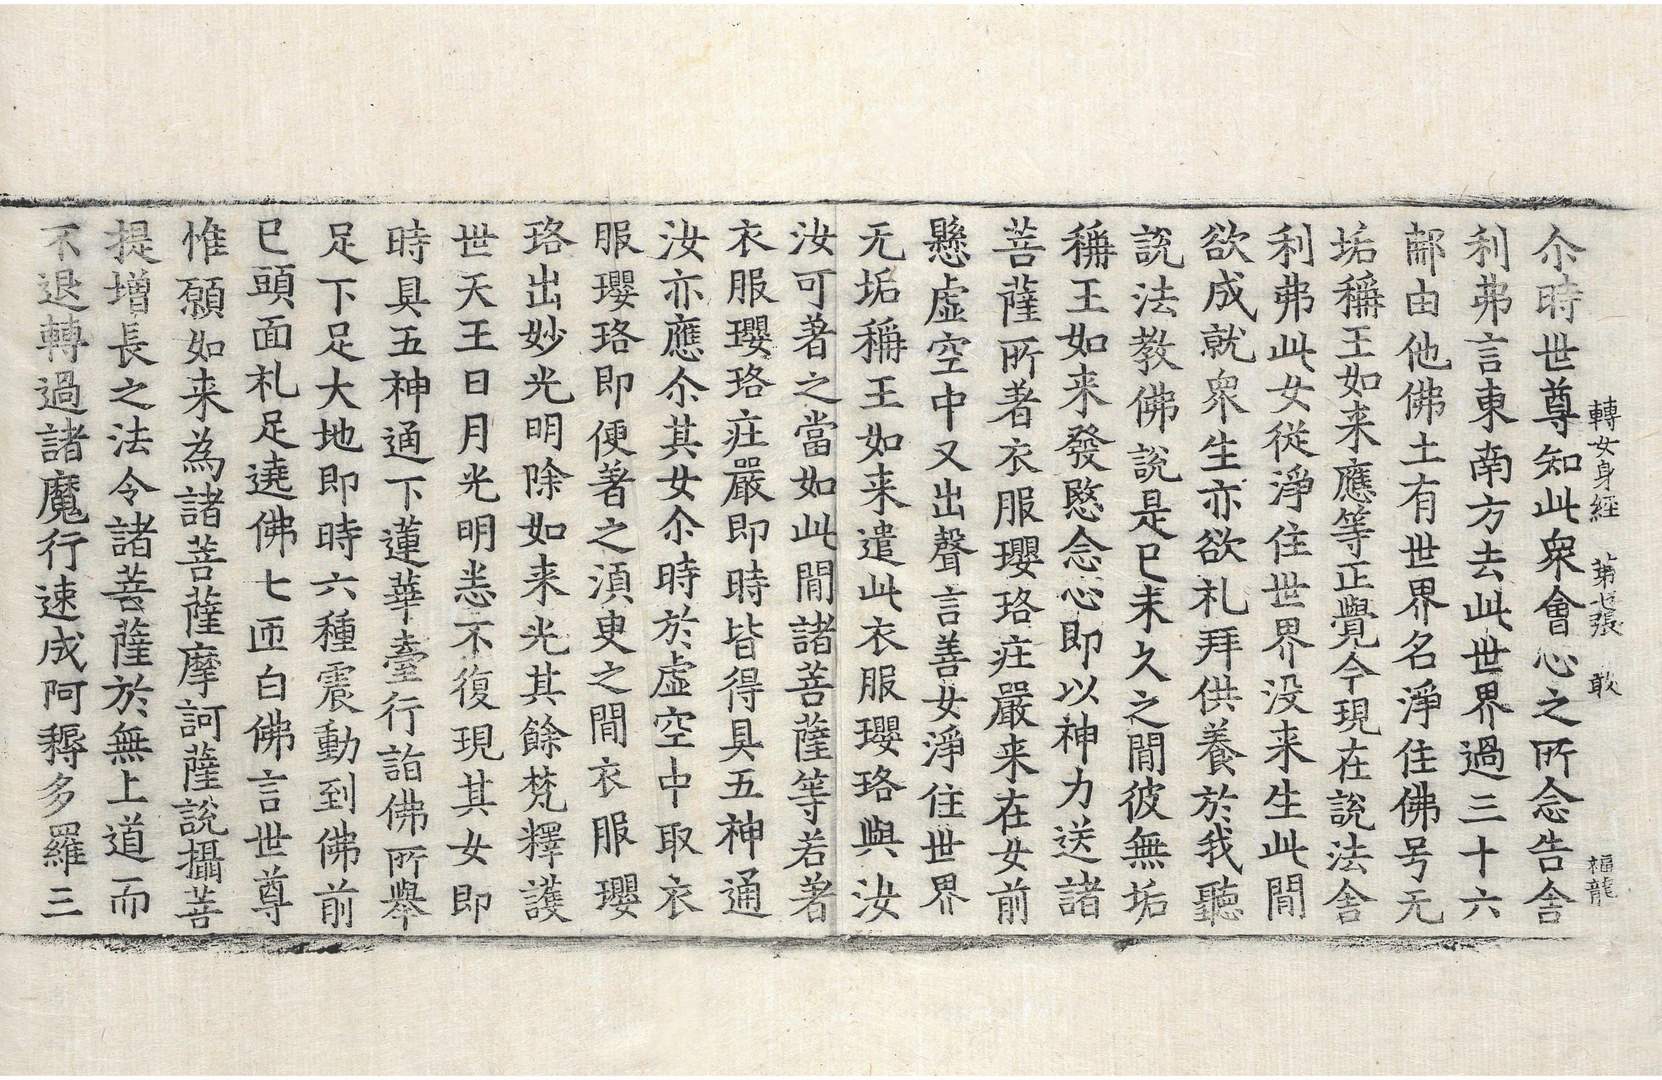 轉女身經　第七張　敢　福龍
尒時世尊知此衆會心之所念告舍
利弗言東南方去此世界過三十六
鄁由他佛土有世界名淨住佛号无
垢稱王如来應等正覺今現在說法舍
利弗此女從淨住世界没来生此閒
欲成就衆生亦欲礼拜供養於我聽
說法教佛說是已未久之閒彼無垢
稱王如来發愍念心即以神力送諸
菩薩所著衣服瓔珞莊嚴来在女前
懸虛空中又出聲言善女淨住世界
无垢稱王如来遣此衣服瓔珞與汝
汝可著之當如此閒諸菩薩等若著
衣服瓔珞莊嚴即時皆得具五神通
汝亦應尒其女尒時於虛空中取衣
服瓔珞即便著之須臾之閒衣服瓔
珞出妙光明除如来光其餘梵釋護
世天王日月光明悉不復現其女即
時具五神通下蓮華臺行詣佛所舉
足下足大地即時六種震動到佛前
已頭面礼足遶佛七匝白佛言世尊
惟願如来為諸菩薩摩訶薩說攝菩
提增長之法令諸菩薩於無上道而
不退轉過諸魔行速成阿耨多羅三